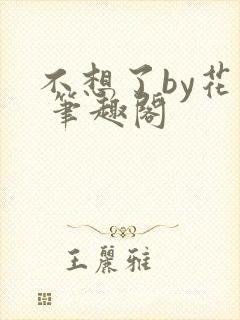 不想了by花
筆趣閣
王麗雅